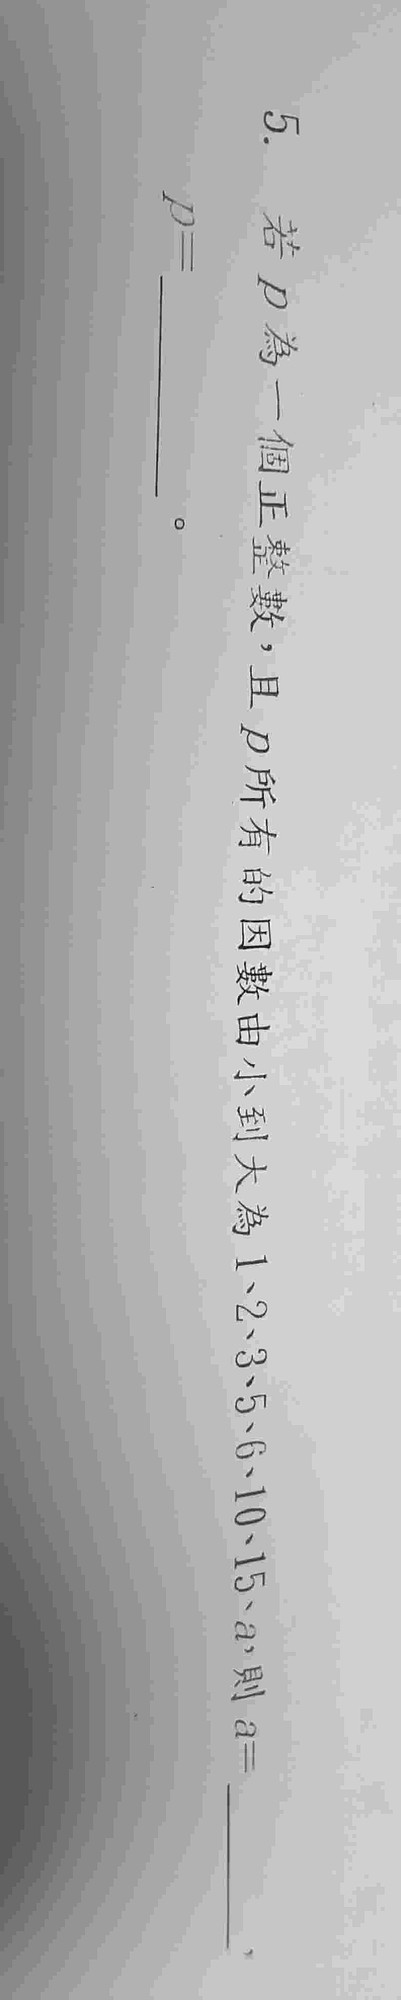 5. 若 p 為一個正整數,且 p 所有的因數由小到大為 1、2、3、5、6、10、15、a,則 a=______,
p=______。